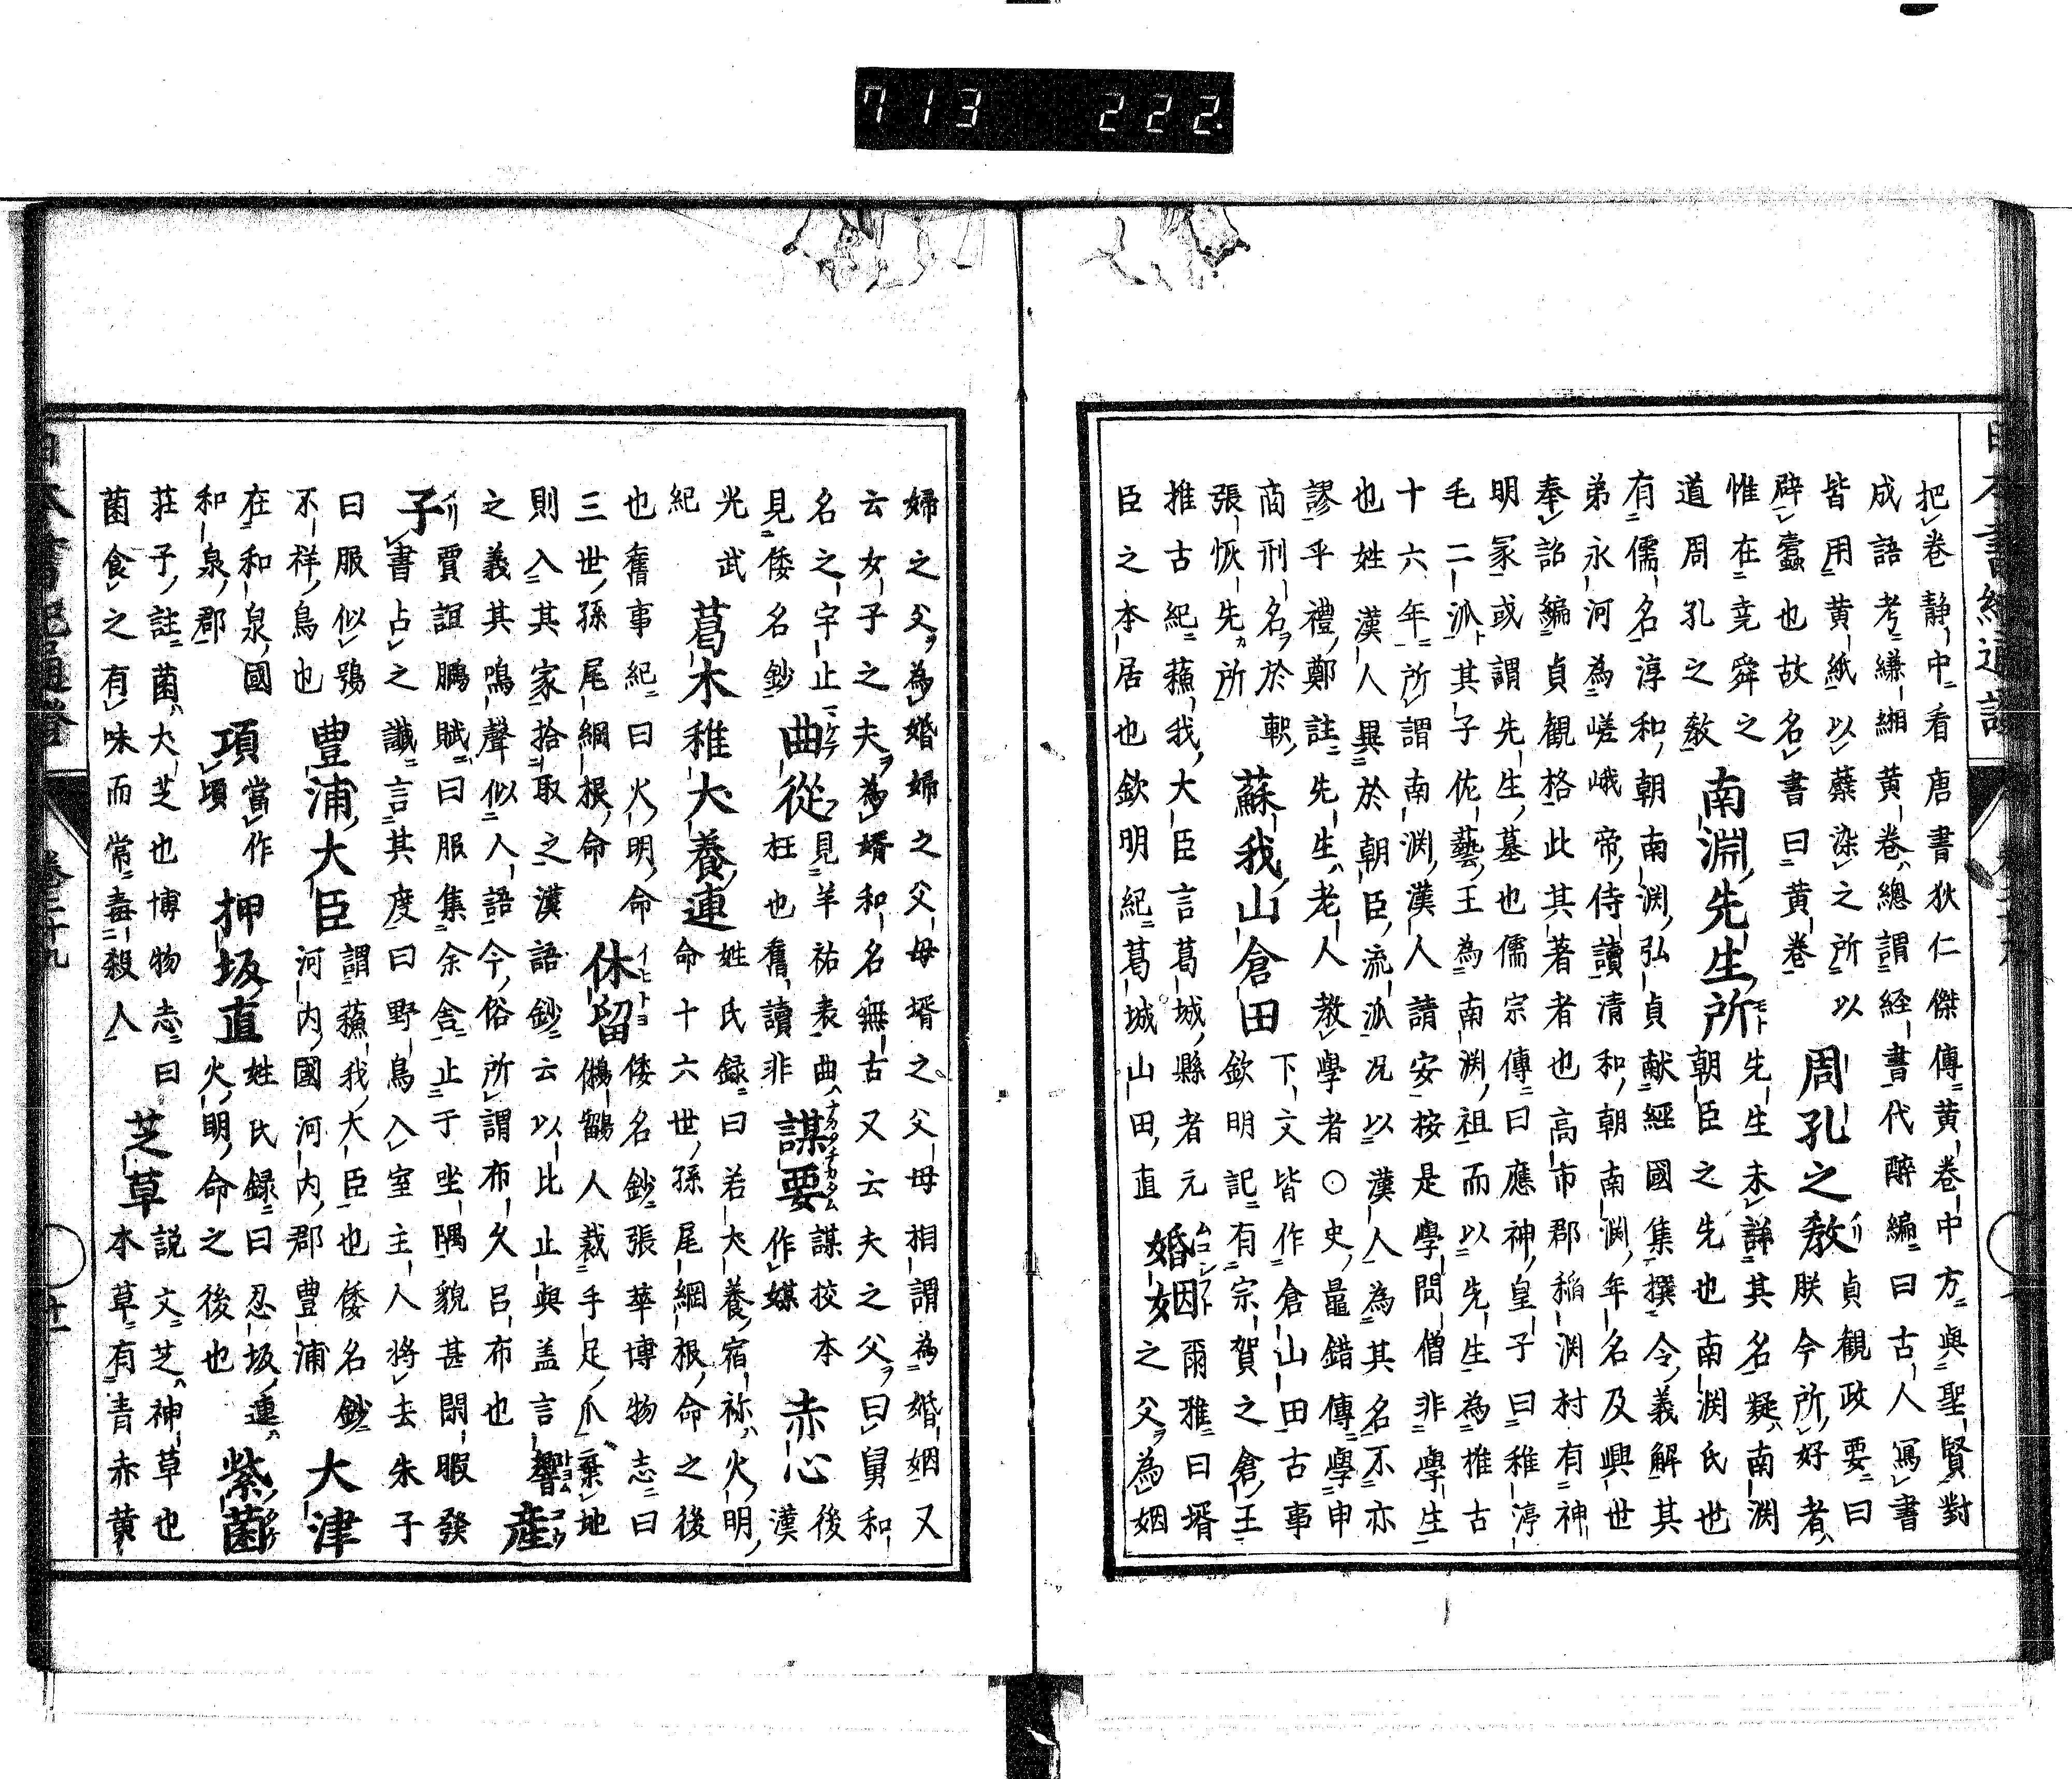 把卷靜中看唐書狄仁傑傳黃卷中方與聖賢對
成語考縑緗黃卷總謂経書代醉編曰古人寫書
皆用黃紙以蘗染之所以
辟蠹也故名書曰黃卷
周孔之敎
貞観政要曰
朕今所好者
惟在尭舜之
道周孔之敎
南淵先生所
先生未詳其名疑南渕
朝臣之先也南渕氏世
有儒名淳和朝南渕弘貞献經國集撰令義解其
弟永河為嵯峨帝侍讀清和朝南渕年名及興世
奉詔編貞観格此其著者也高市郡稲渕村有神
明冢或謂先生墓也儒宗傳曰應神皇子曰稚渟
毛二泒其子佐藝王為南渕祖而以先生為推古
十六年所謂南渕漢人請安按是學問僧非學生
也姓漢人異於朝臣流泒况以漢人為其名不亦
謬乎禮鄭註先生老人教學者○史鼂錯傳學申
商刑名於軹
張恢先所
蘇我山倉田
下文皆作倉山田古事
欽明記有宗賀之倉王
推古紀蘓我大臣言葛城縣者元
臣之本居也欽明紀葛城山田直
婚姻
爾雅曰壻
之父為姻
婦之父為婚婦之父母壻之父母相謂為婚姻又
云女子之夫為壻和名無古又云夫之父曰舅和
名之宇止
見倭名鈔
曲從
見羊祜表曲
枉也舊讀非
謀要
謀挍本
作媒
赤心
後
漢
光武
紀
葛木稚犬養連
姓氏録曰若犬養宿祢火明
命十六世孫尾綱根命之後
也舊事紀曰火明命
三世孫尾綱根命
休留
倭名鈔張華博物志曰
鵂鶹人裁手足爪棄地
則入其家拾取之漢語鈔云以比止與盖言響
之義其鳴聲似人語今俗所謂布久呂布也
產
子
賈誼鵬賦曰服集余舎止于坐隅貌甚閑暇發
書占之讖言其度曰野鳥入室主人將去朱子
曰服似鴞
不祥鳥也
豊浦大臣
謂蘓我大臣也倭名鈔
河内國河内郡豊浦
大津
在和泉國
和泉郡
項
當作
頃
押坂直
姓氏録曰忍坂連
火明命之後也
紫菌
莊子註菌大芝也博物志曰
菌食之有味而常毒殺人
芝草
説文芝神草也
本草有青赤黃
713 222